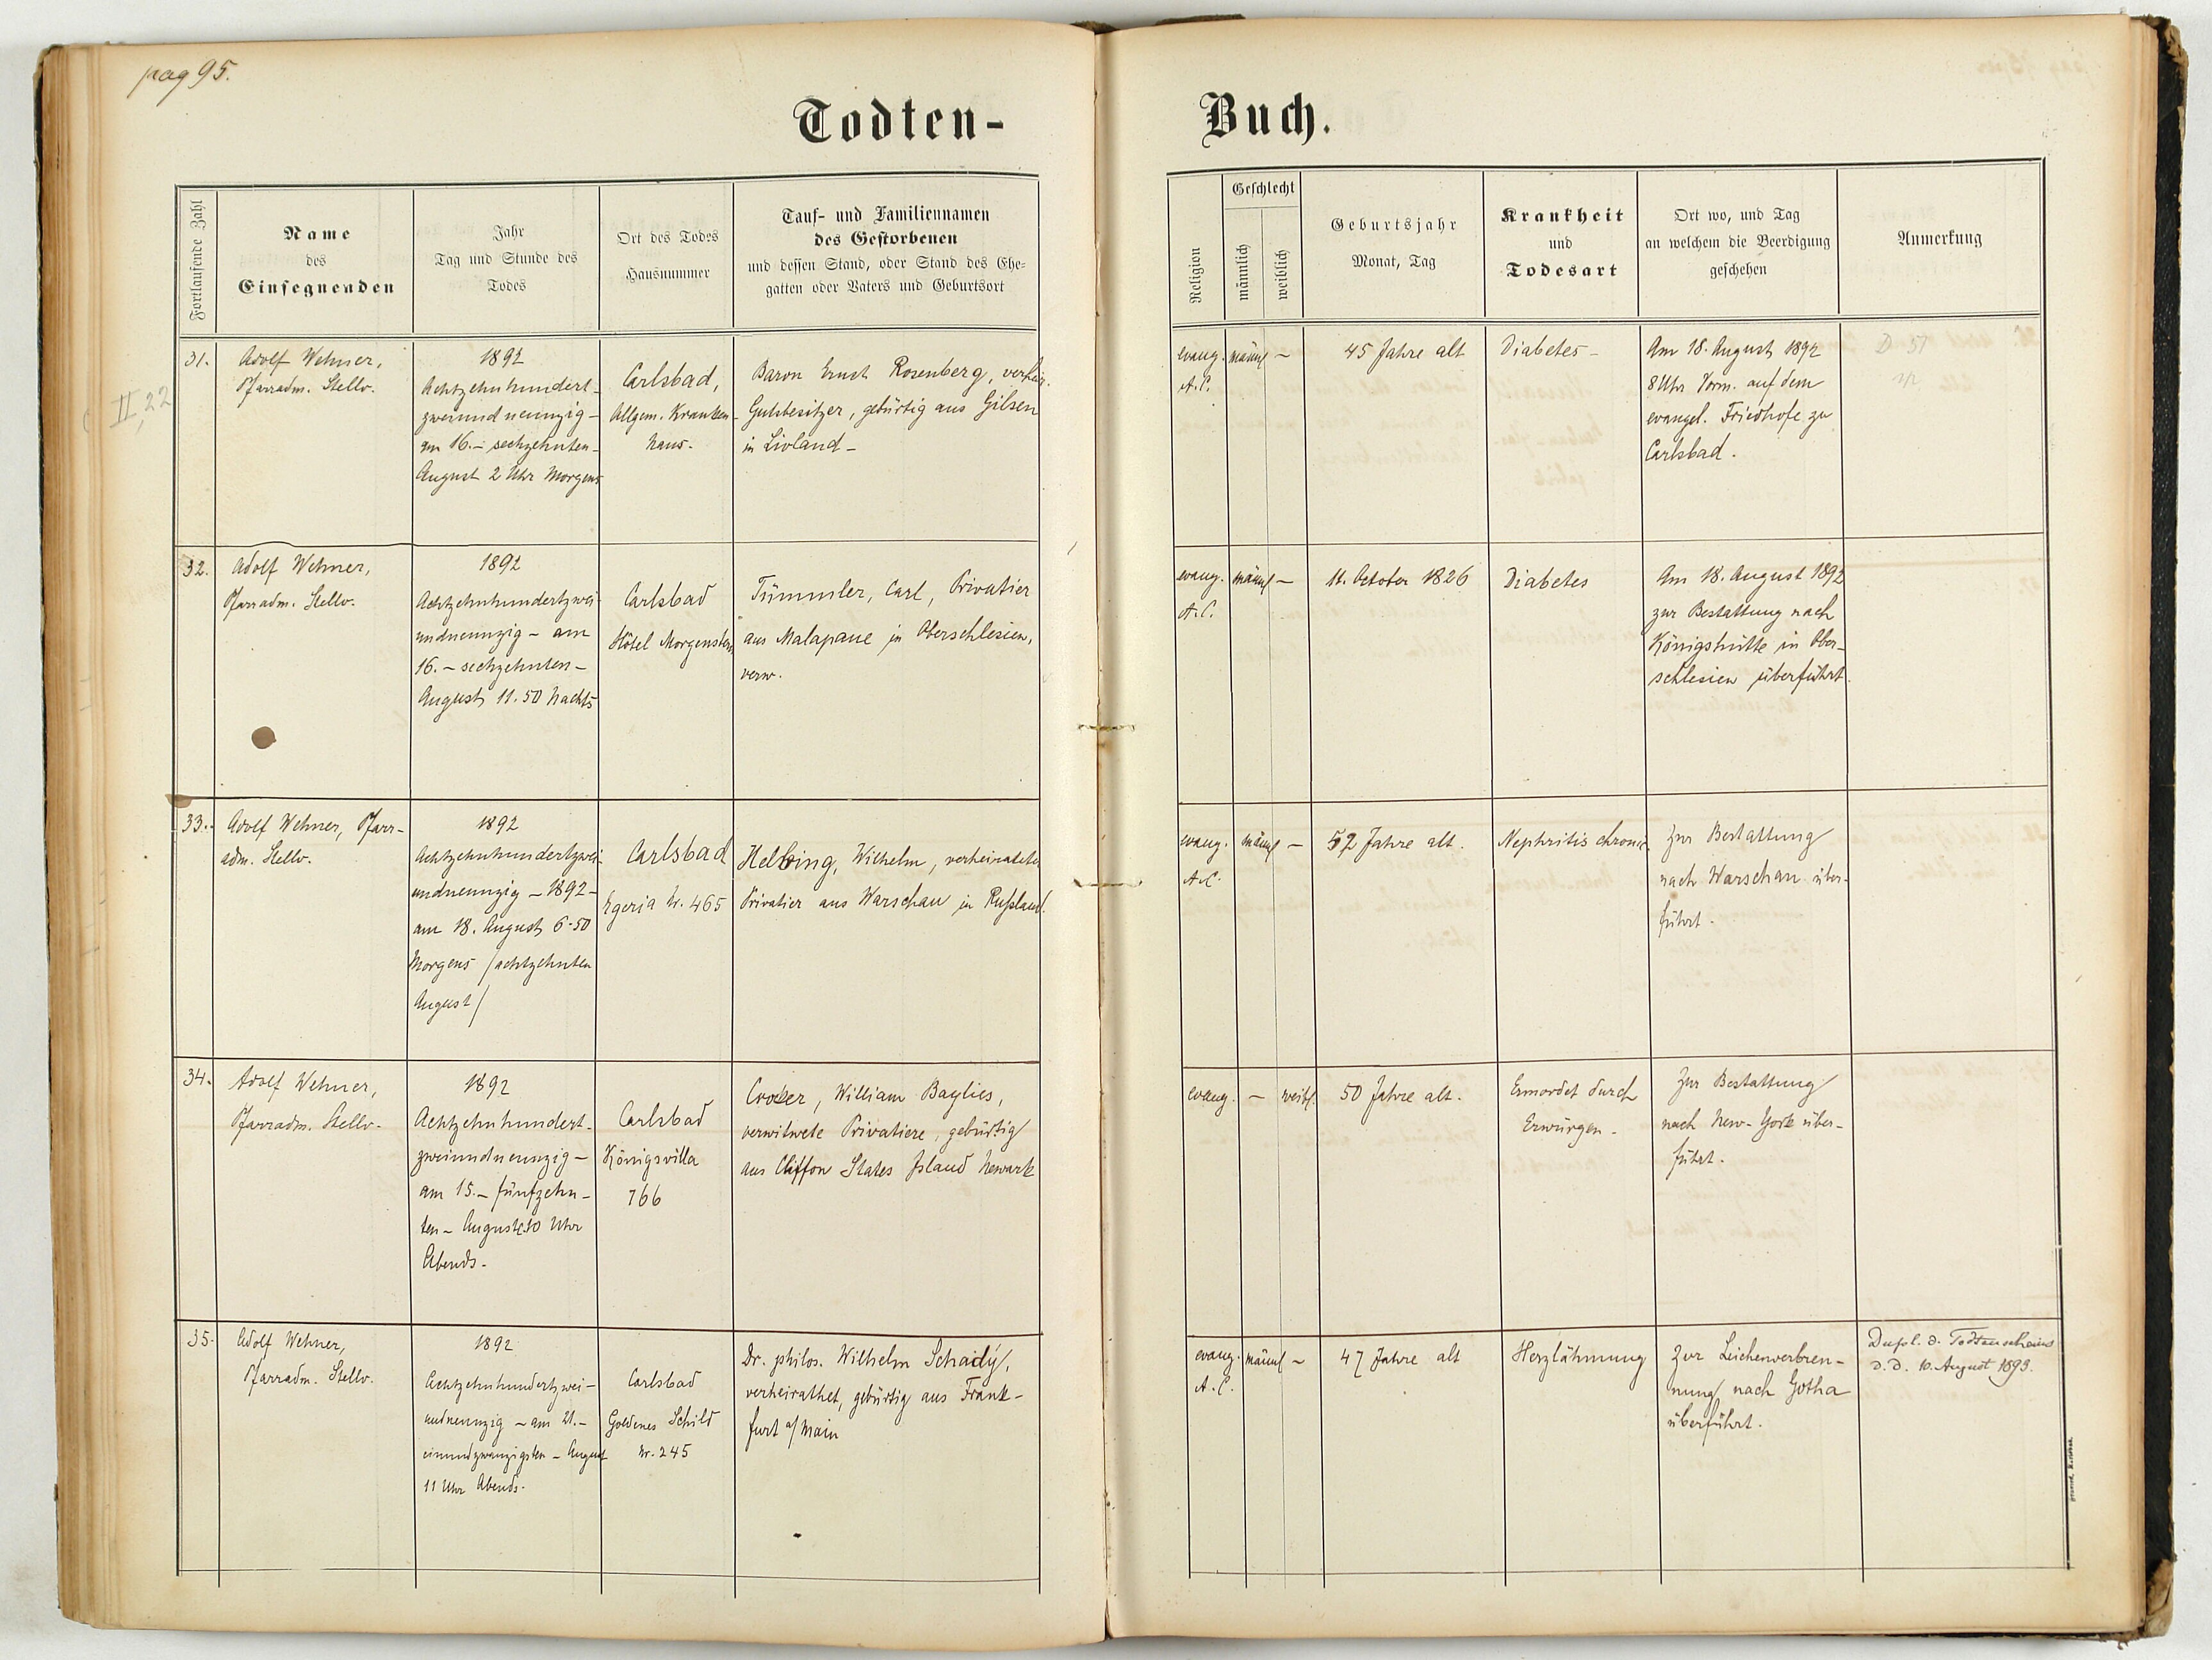 pag 95.
Todten-
Buch.
Fortlaufende Zahl
Name
des
Einsegnenden
Jahr
Tag und Stunde des
Todes
Ort des Todes
Hausnummer
Tauf- und Familiennamen
des Gestorbenen
und dessen Stand, oder Stand des Ehe-
gatten oder Vaters und Geburtsort
Religion
Geschlecht
männlich
weiblich
Geburtsjahr
Monat, Tag
Krankheit
und
Todesart
Ort wo, und Tag
an welchem die Beerdigung
geschehen
Anmerkung
II, 22
31.
Adolf Wehner,
Pfarradm. Stellv.
1892
Achtzehnhundert-
zweiundneunzig -
am 16. - sechzehnten -
August 2 Uhr Morgens
Carlsbad,
Allgem. Kranken-
haus.
Baron Ernst Rosenberg, verheir.
Gutsbesitzer, gebürtig aus Gilsen
in Livland -
evang.
A.C.
männl
-
45 Jahre alt
Diabetes -
Am 18. August 1892
8 Uhr Vorm. auf dem
evangel. Friedhofe zu
Carlsbad.
D 51
32.
Adolf Wehner,
Pfarradm. Stellv.
1892
Achtzehnhundertzwei-
undneunzig - am
16. - sechzehnten -
August 11.50 Nachts
Carlsbad
Hôtel Morgenstern
Tümmler, Carl, Privatier
aus Malapane in Oberschlesien,
verw.
evang.
A.C.
männl -
11. October 1826
Diabetes
Am 18. August 1892
zur Bestattung nach
Königshütte in Ober-
schlesien überführt.
33.
Adolf Wehner, Pfarr-
adm. Stellv.
1892
Achtzehnhundertzwei-
undneunzig - 1892 -
am 18. August 6.50
Morgens /achtzehnten
August/
Carlsbad
Egeria Nr. 465
Helbing, Wilhelm, verheirateter
Privatier aus Warschau in Rußland.
evang.
A.C.
männl -
52 Jahre alt.
Nephritis chronic.
Zur Bestattung
nach Warschau über-
führt.
34.
Adolf Wehner,
Pfarradm. Stellv.
1892
Achtzehnhundert-
zweiundneunzig -
am 15. - fünfzehn-
ten - August 10 Uhr
Abends.
Carlsbad
Königsvilla
766
William Baylies,
verwitwete Privatiere, gebürtig
aus Cliffon States Island Newark
evang.
-
weibl.
50 Jahre alt.
Ermordet durch
Erwürgen.
Zur Bestattung
nach New-York über-
führt.
35.
Adolf Wehner,
Pfarradm. Stellv.
1892
Achtzehnhundertzwei-
undneunzig - am 21. -
einundzwanzigsten - August
11 Uhr Abends.
Carlsbad
Goldenes Schild
Nr. 245
Dr. philos. Wilhelm Schaidy,
verheirathet, gebürtig aus Frank-
furt a/Main
evang.
A.C.
männl -
47 Jahre alt
Herzlähmung
Zur Leichenverbren-
nung nach Gotha
überführt.
Dupl. d. Todtenscheins
d.d. 10. August 1893.